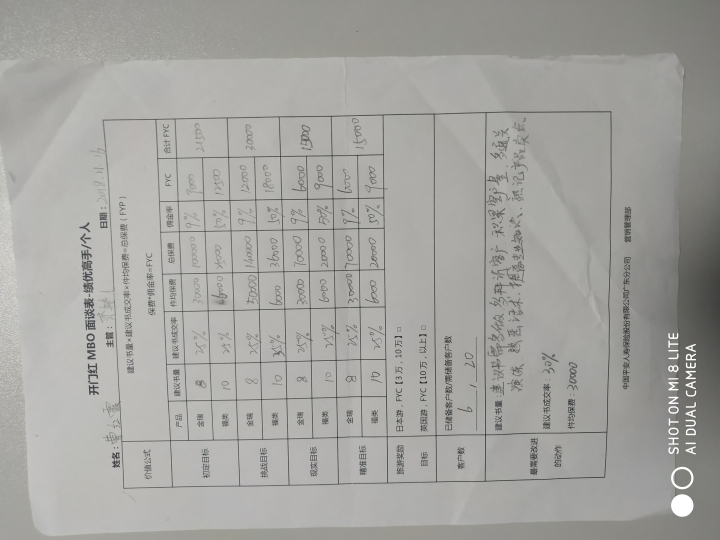 开门红 MBO 面谈表-绩优高手/个人
姓名: 主管: 日期: 2018.11.16
价值公式 建议书量×建议书成交率×件均保费=总保费(FYP)
保费*佣金率=FYC
产品 建议书量 建议书成交率 件均保费 总保费 佣金率 FYC 合计 FYC
初定目标 金瑞 8 25% 9% 9000 21500
福类 10 25% 50% 12500
挑战目标 金瑞 8 25% 140000 9% 12000 30000
福类 10 6000 36000 50% 18000
现实目标 金瑞 8 25% 30000 70000 9% 6000 15000
福类 10 25% 6000 20000 50% 9000
精准目标 金瑞 8 25% 30000 70000 9% 6000 15000
福类 10 25% 6000 20000 50% 9000
旅游奖励 日本游,FYC【3万,10万】□
目标 英国游,FYC【10万,以上】□
客户数 已储备客户数/需储备客户数
6 , 20
最需要改进 建议书量:建议书需多做 多拜访客户 积累客户量 多通关
的动作 演练 熟悉话术,提高专业知识、
建议书成交率:30%
件均保费:30000
中国平安人寿保险股份有限公司广东分公司 营销管理部
SHOT ON MI 8 LITE
AI DUAL CAMERA